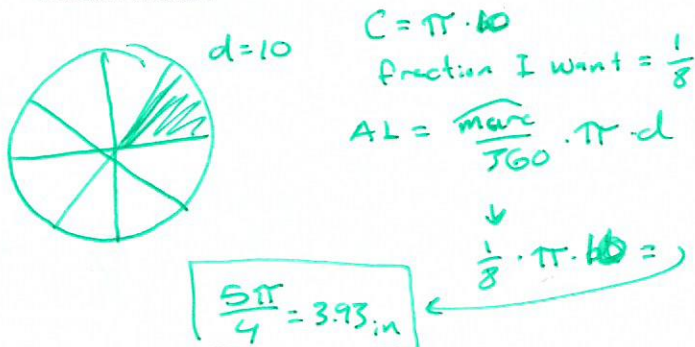 d=10
C = π·10
fraction I want = 1/8
AL = m arc/360 · π · d
↓
1/8 · π · 10 =
5π/4 = 3.93 in